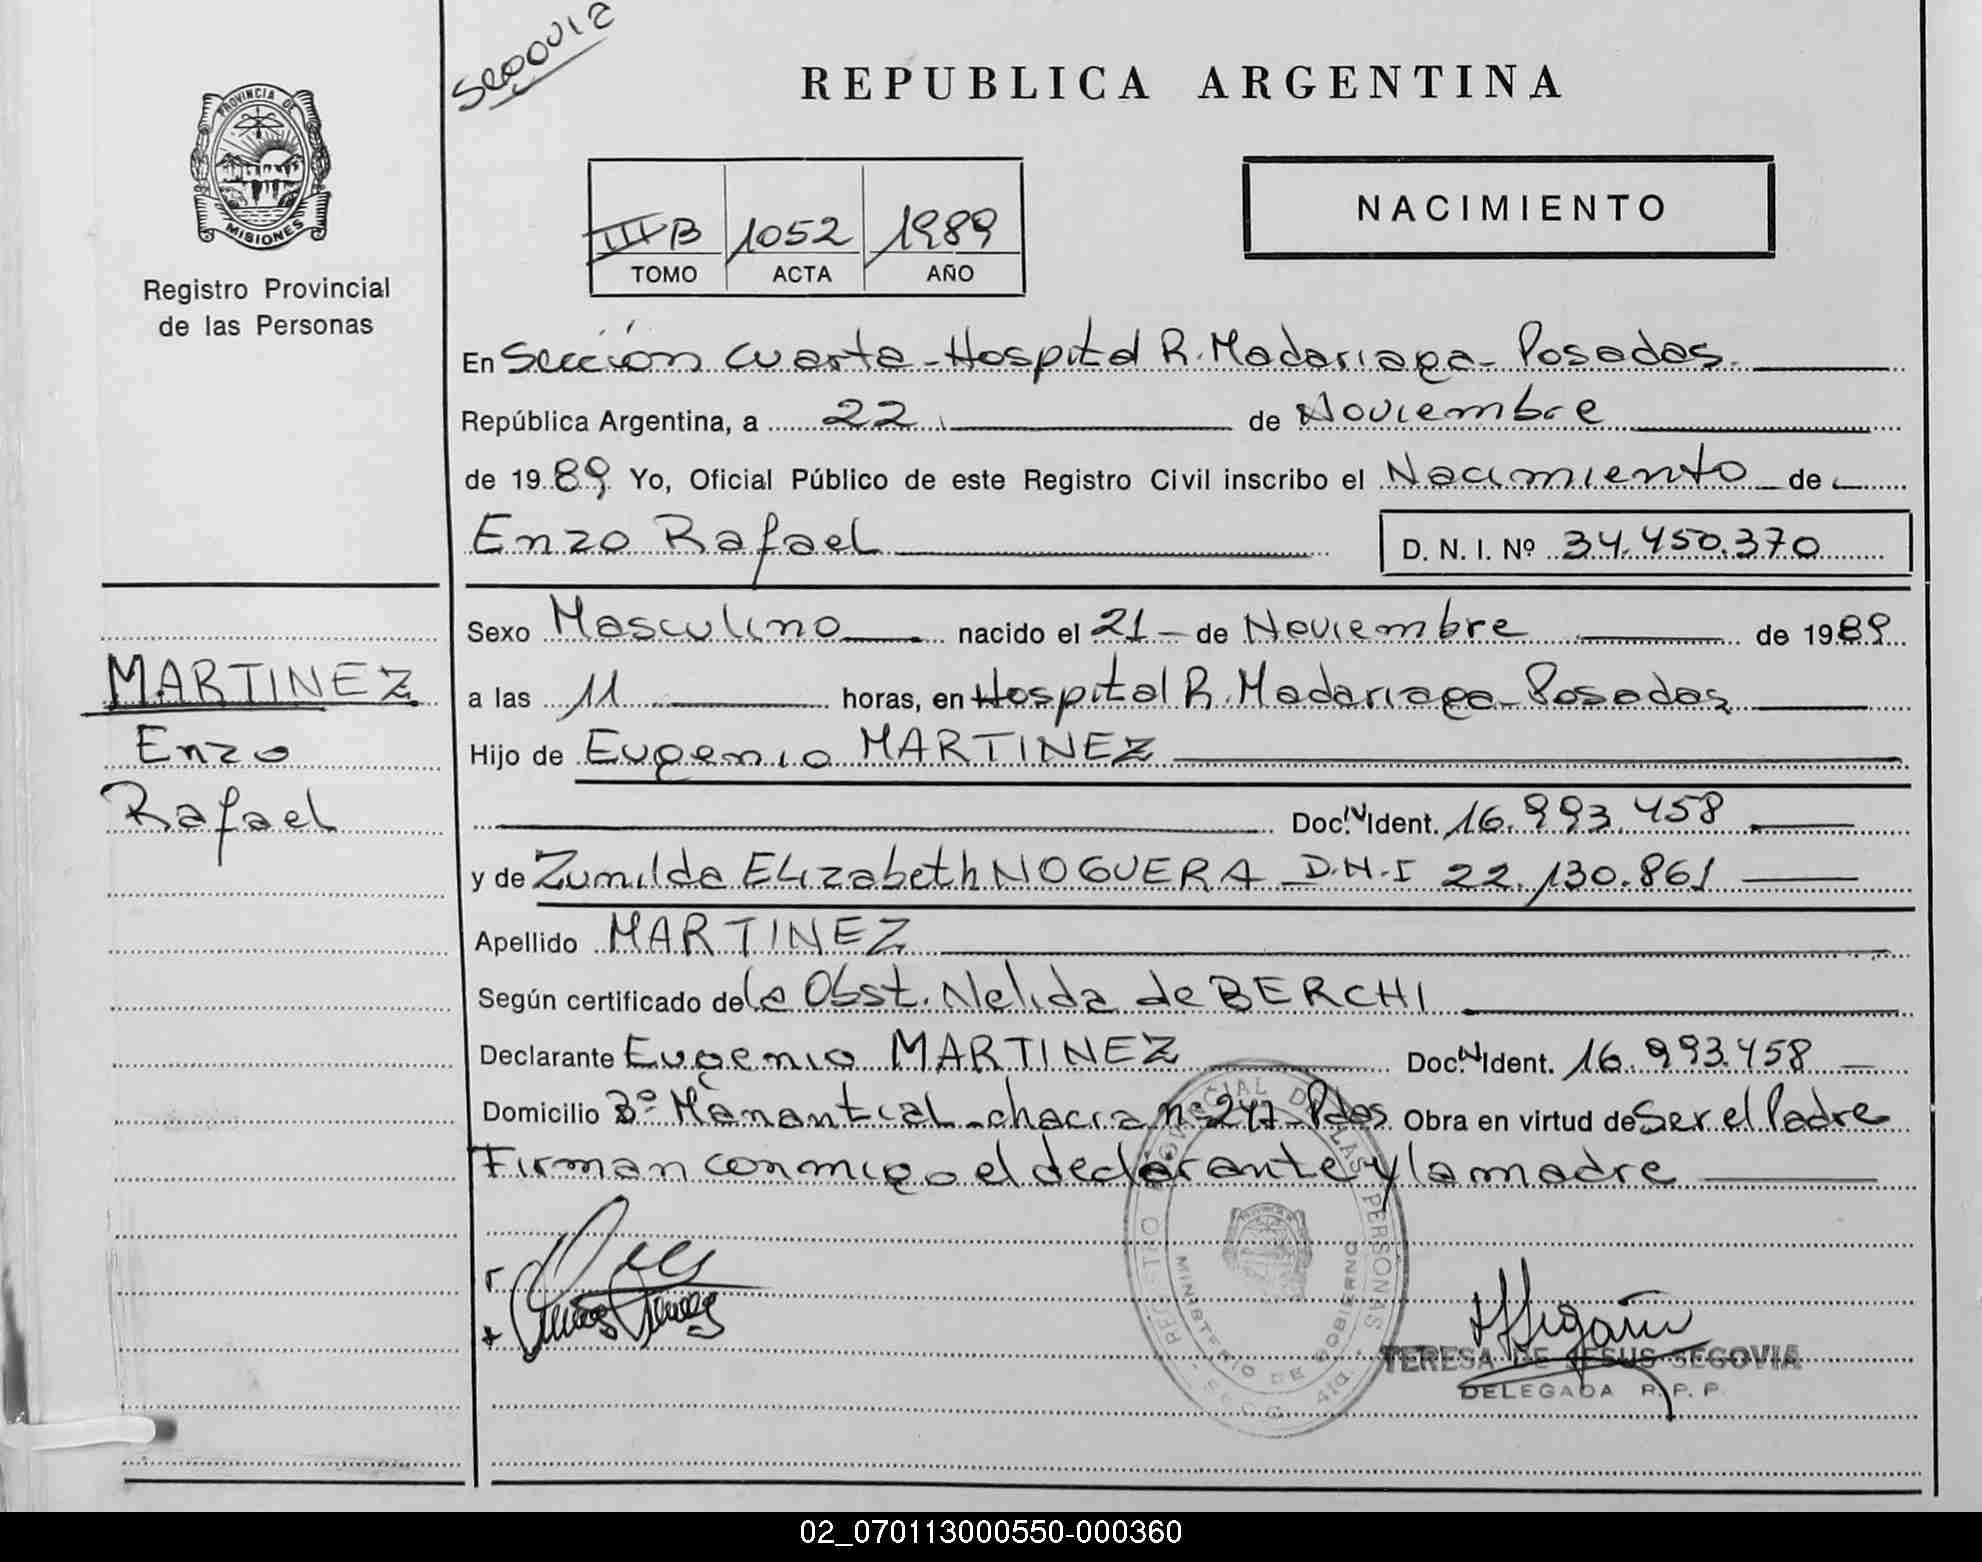 Segovia
REPUBLICA ARGENTINA
PROVINCIA DE
MISIONES
Registro Provincial
de las Personas
III B 1052 1989
TOMO ACTA AÑO
NACIMIENTO
En Sección Cuarta - Hospital R. Madariaga - Posadas.
República Argentina, a 22 de Noviembre
de 1989 Yo, Oficial Público de este Registro Civil inscribo el Nacimiento de
Enzo Rafael D. N. I. Nº 34.450.370
Sexo Masculino nacido el 21 - de Noviembre de 1989
MARTINEZ
Enzo
Rafael
a las 11 horas, en Hospital R. Madariaga - Posadas
Hijo de Eugenio MARTINEZ
Doc. N Ident. 16.993.458
y de Zunilda Elizabeth NOGUERA D.N.I 22.130.861
Apellido MARTINEZ
Según certificado de la Obst. Nelida de BERCHI
Declarante Eugenio MARTINEZ Doc. N Ident. 16.993.458
Domicilio Bº Manantial - chacra nº 247 - Pdas Obra en virtud de Ser el Padre
Firman conmigo el declarante y la madre
REGISTRO PROVINCIAL DE LAS PERSONAS
MINISTERIO DE GOBIERNO
SECC. 4ta.
TERESA DE JESUS SEGOVIA
DELEGADA R. P. P.
02_070113000550-000360